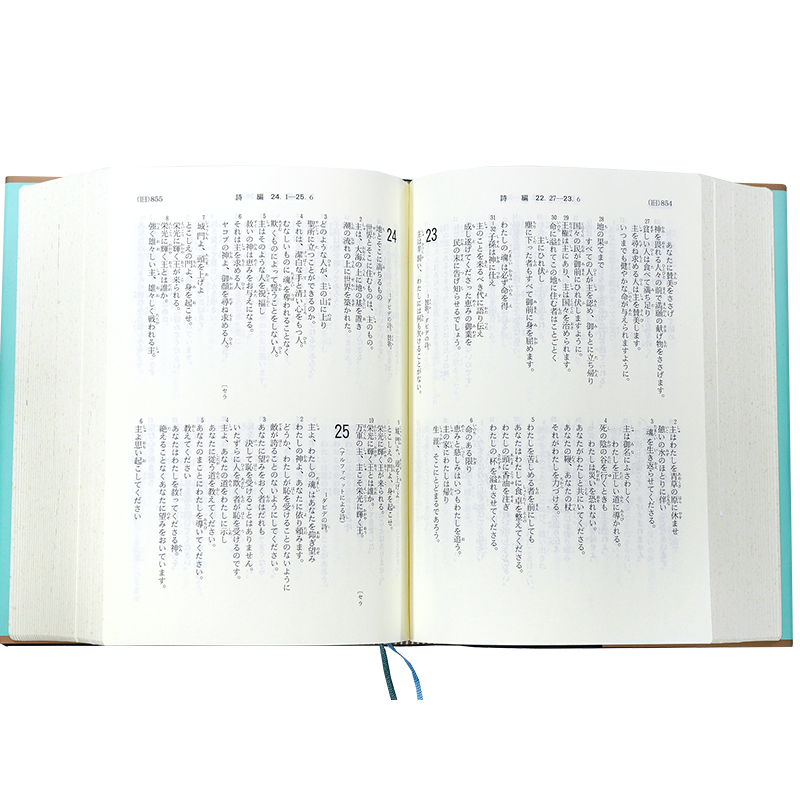 (旧)854
詩編 22. 27―23. 6
あなたに賛美をささげ
神を畏れる人々の前で満願の献げ物をささげます。
27 貧しい人は食べて満ち足り
主を尋ね求める人は主を賛美します。
いつまでも健やかな命が与えられますように。
28 地の果てまで
すべての人が主を認め、御もとに立ち帰り
国々の民が御前にひれ伏しますように。
29 王権は主にあり、主は国々を治められます。
30 命に溢れてこの地に住む者はことごとく
主にひれ伏し
塵に下った者もすべて御前に身を屈めます。
わたしの魂は必ず命を得
31-32 子孫は神に仕え
主のことを来るべき代に語り伝え
成し遂げてくださった恵みの御業を
民の末に告げ知らせるでしょう。
23
【賛歌。ダビデの詩。】
1 主は羊飼い、わたしには何も欠けることがない。
2 主はわたしを青草の原に休ませ
憩いの水のほとりに伴い
3 魂を生き返らせてくださる。
主は御名にふさわしく
わたしを正しい道に導かれる。
4 死の陰の谷を行くときも
わたしは災いを恐れない。
あなたがわたしと共にいてくださる。
あなたの鞭、あなたの杖
それがわたしを力づける。
5 わたしを苦しめる者を前にしても
あなたはわたしに食卓を整えてくださる。
わたしの頭に香油を注ぎ
わたしの杯を溢れさせてくださる。
6 命のある限り
恵みと慈しみはいつもわたしを追う。
主の家にわたしは帰り
生涯、そこにとどまるであろう。
(旧)855
詩編 24. 1―25. 6
24
1【ダビデの詩。賛歌。】
地とそこに満ちるもの
世界とそこに住むものは、主のもの。
2 主は、大海の上に地の基を置き
潮の流れの上に世界を築かれた。
3 どのような人が、主の山に上り
聖所に立つことができるのか。
4 それは、潔白な手と清い心をもつ人。
むなしいものに魂を奪われることなく
欺くものによって誓うことをしない人。
5 主はそのような人を祝福し
救いの神は恵みをお与えになる。
6 それは主を求める人
ヤコブの神よ、御顔を尋ね求める人。
〔セラ
7 城門よ、頭を上げよ
とこしえの門よ、身を起こせ。
栄光に輝く王が来られる。
8 栄光に輝く王とは誰か。
強く雄々しい主、雄々しく戦われる主。
9 城門よ、頭を上げよ
とこしえの門よ、身を起こせ。
栄光に輝く王が来られる。
10 栄光に輝く王とは誰か。
万軍の主、主こそ栄光に輝く王。
〔セラ
25
(アルファベットによる詩)
1【ダビデの詩。】
主よ、わたしの魂はあなたを仰ぎ望み
2 わたしの神よ、あなたに依り頼みます。
どうか、わたしが恥を受けることのないように
敵が誇ることのないようにしてください。
3 あなたに望みをおく者はだれも
決して恥を受けることはありません。
いたずらに人を欺く者が恥を受けるのです。
4 主よ、あなたの道をわたしに示し
あなたに従う道を教えてください。
5 あなたのまことにわたしを導いてください。
教えてください
あなたはわたしを救ってくださる神。
絶えることなくあなたに望みをおいています。
6 主よ思い起こしてください